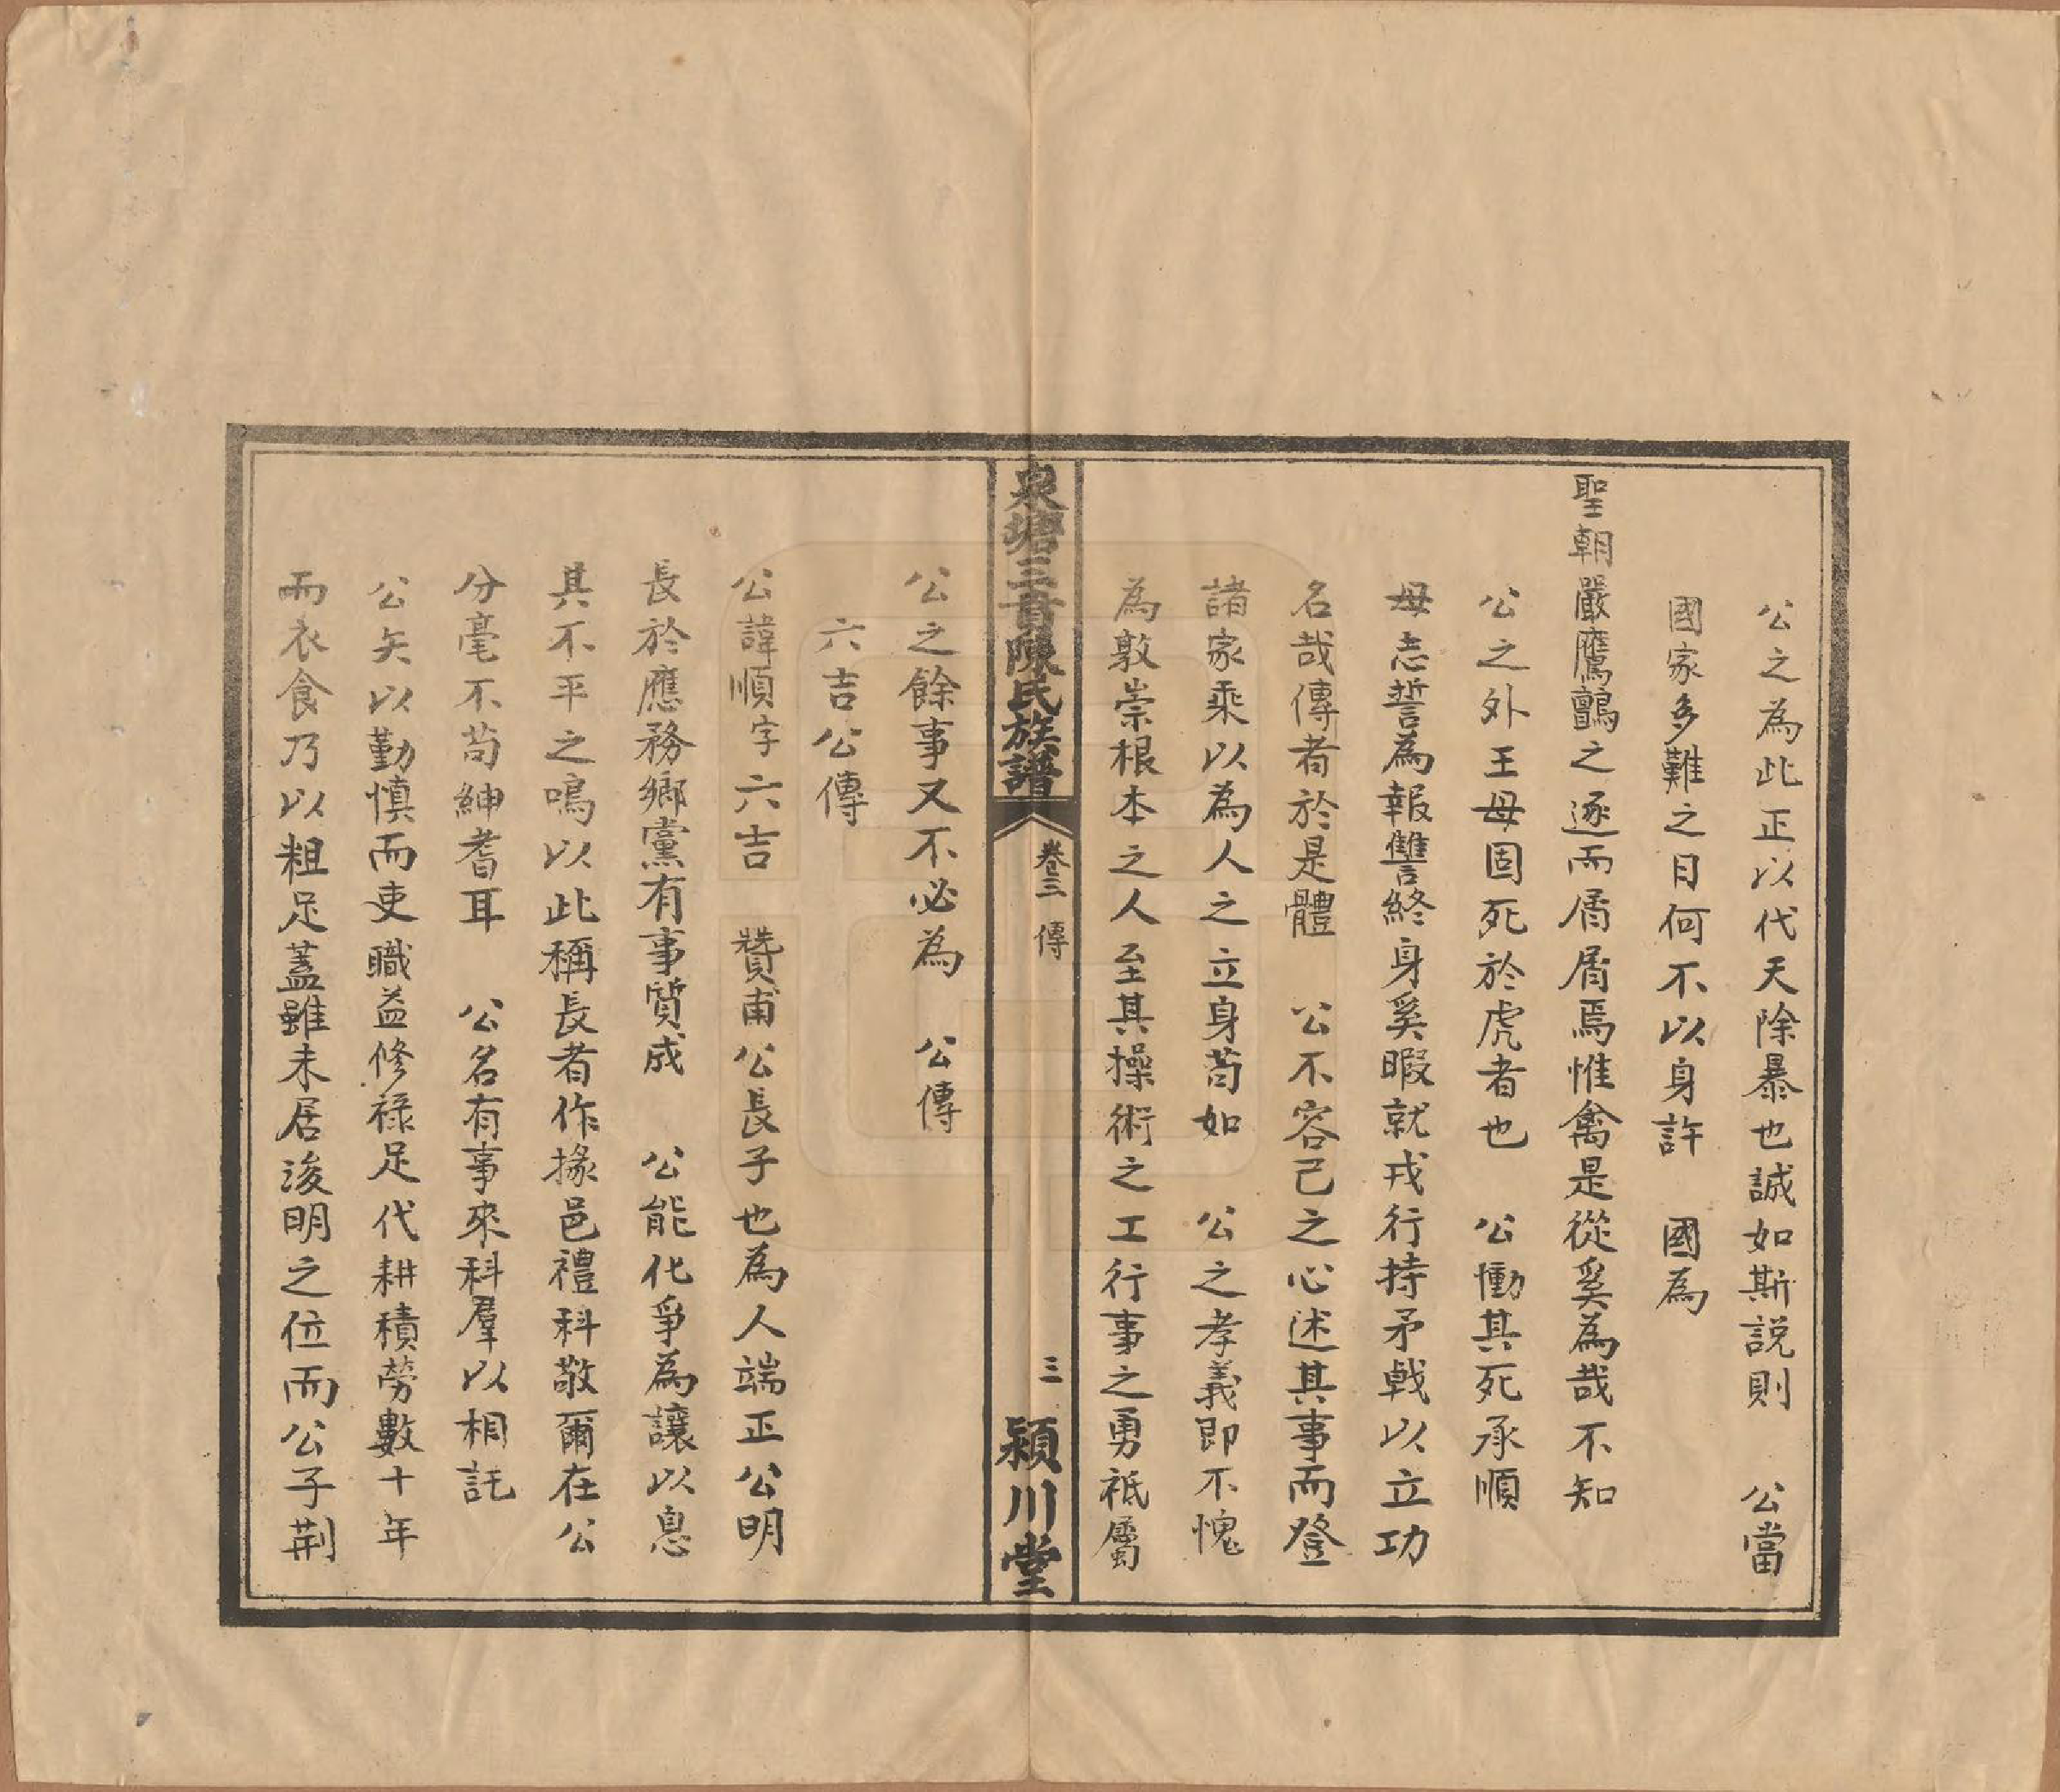 公之為此正以代天除暴也誠如斯説則　公當
國家多難之日何不以身許　國為
聖朝嚴鷹鸇之逐而屑屑焉惟禽是從奚為哉不知
公之外王母固死於虎者也　公慟其死承順
母志誓為報讐終身奚暇就戎行持矛戟以立功
名哉傳者於是體　公不容已之心述其事而登
諸家乘以為人之立身苟如　公之孝義即不愧
為敦崇根本之人至其操術之工行事之勇祇屬
泉塘三甲陳氏族譜　卷三　傳　三　潁川堂
公之餘事又不必為　公傳
六吉公傳
公諱順字六吉　贊甫公長子也為人端正公明
長於應務鄉黨有事質成　公能化爭為讓以息
其不平之鳴以此稱長者作掾邑禮科敬爾在公
分毫不苟紳耆耳　公名有事來科羣以相託
公矢以勤慎而吏職益修祿足代耕積勞數十年
而衣食乃以粗足蓋雖未居浚明之位而公子荆